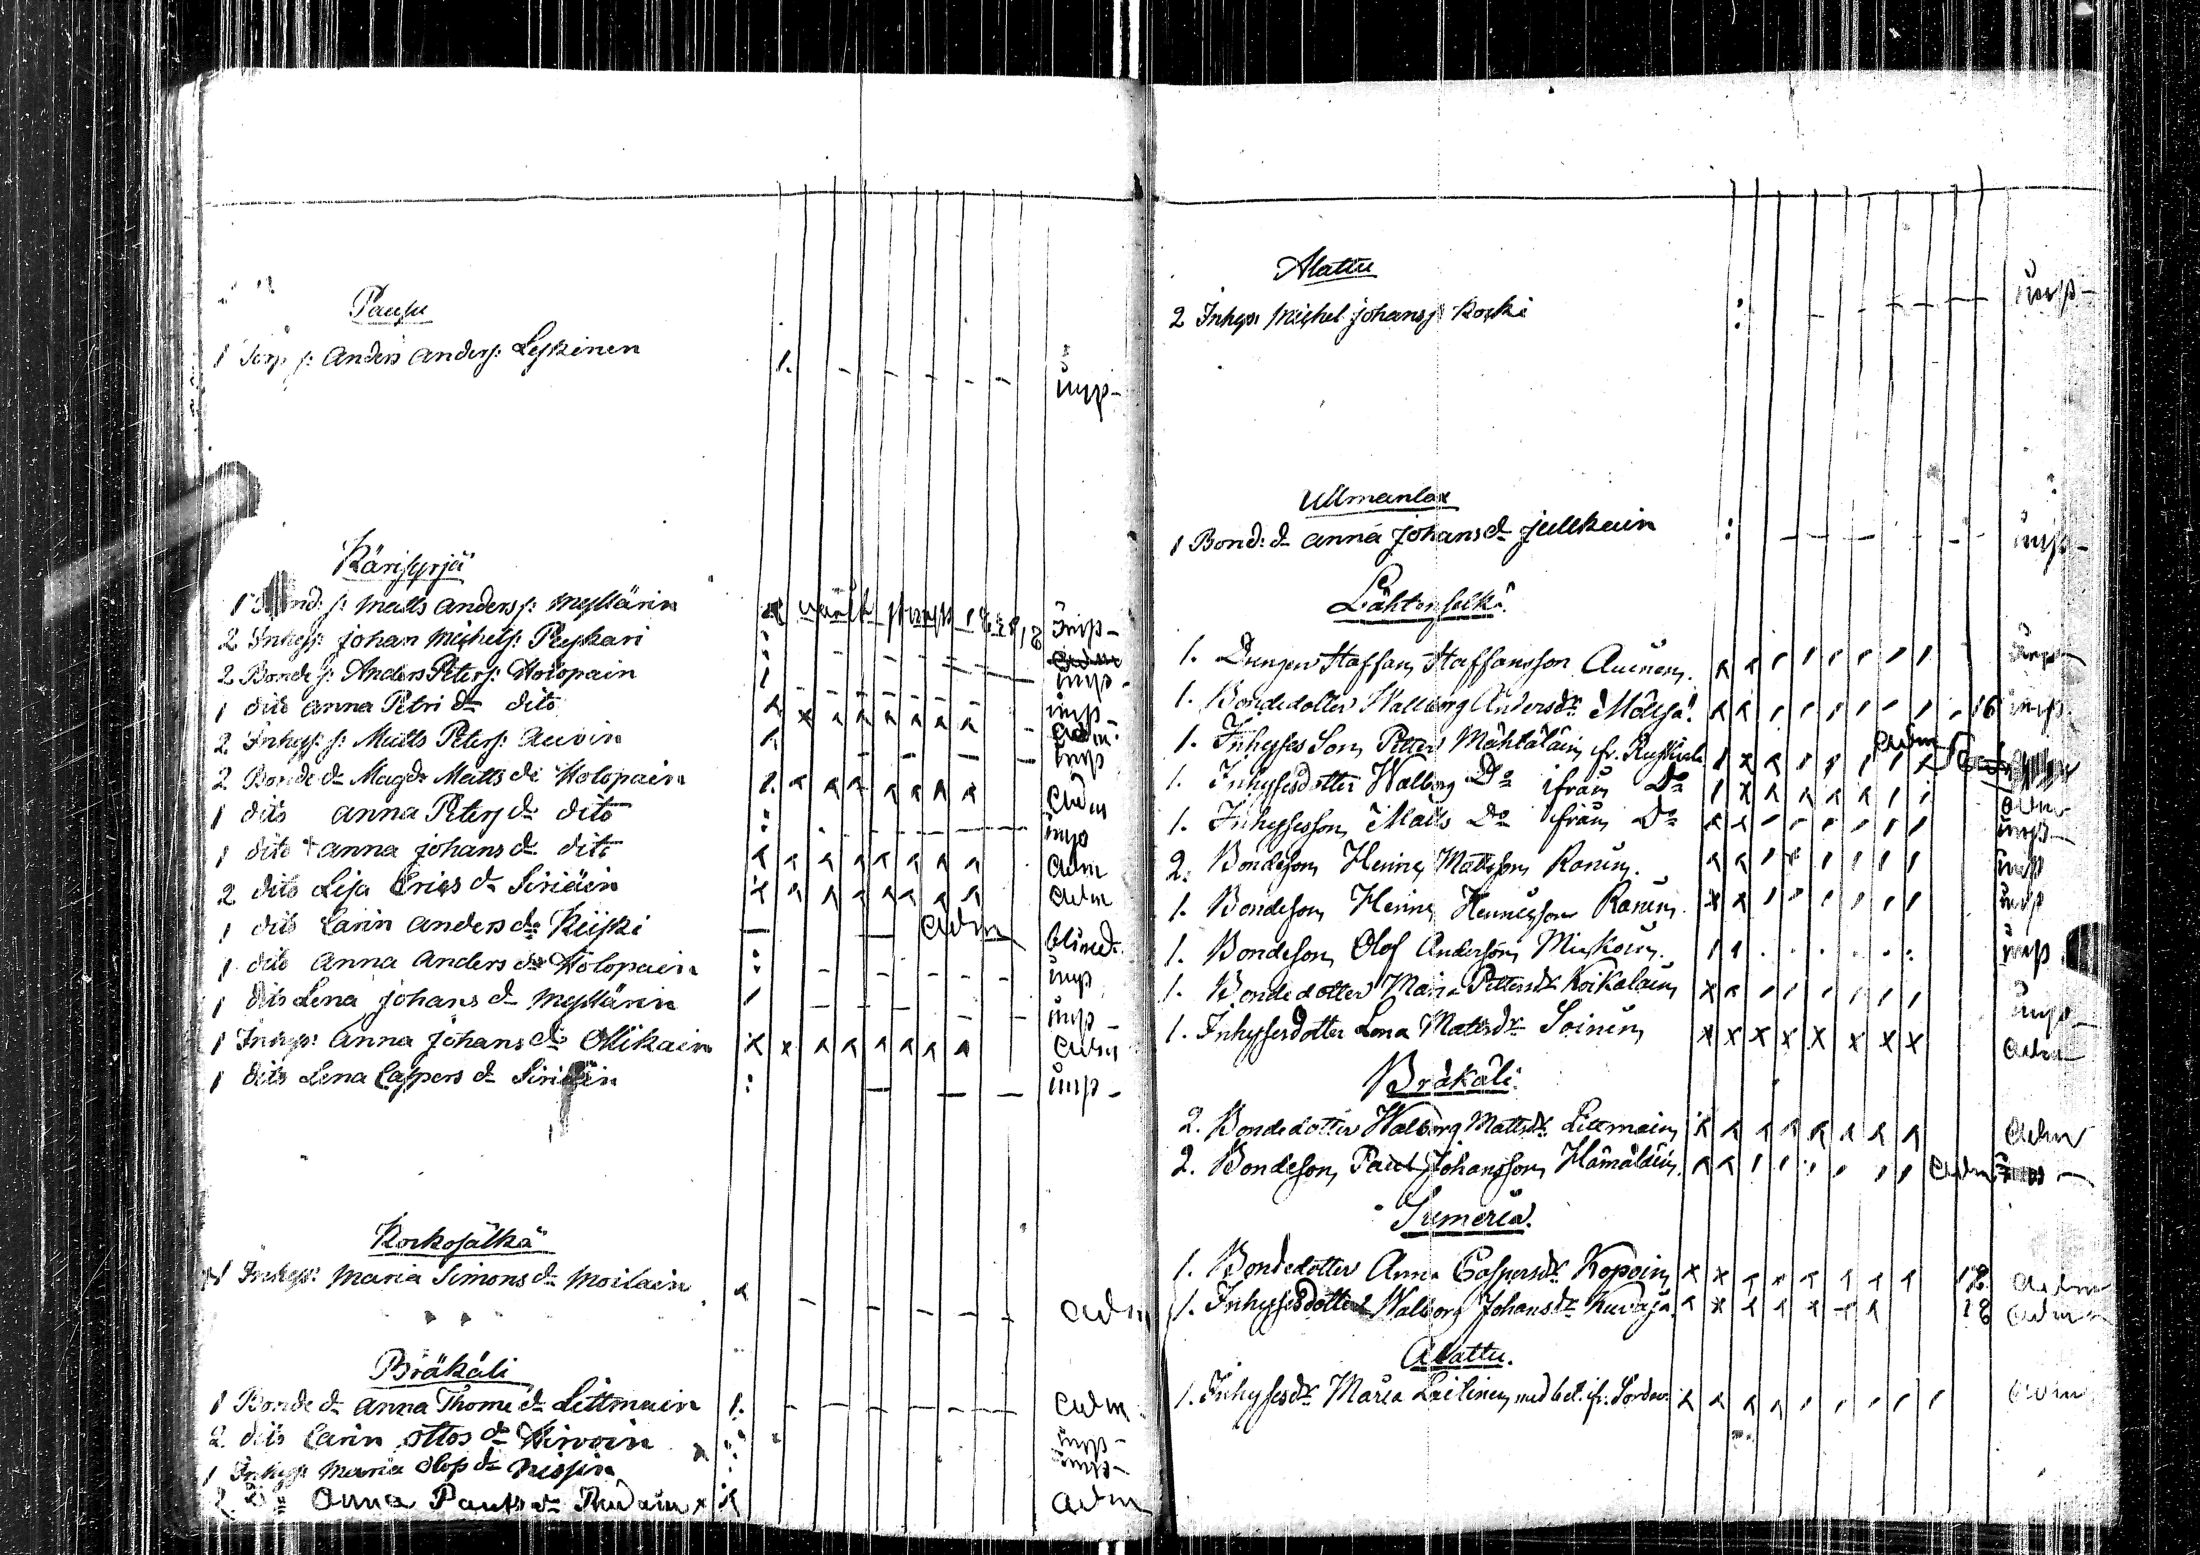 Pausu
1 Torp s: Anders Anders: Leskinen 1. imp-
Kärisyrjä
1 Bond: s: Matts Anders s: Myllärin imp-
2 Inhys: Johan Michels: Puskari
2 Bonde s: Anders Peters: Holopain imp-
1 dito Anna Petri d:r dito imp-
2 Inhys: s: Matts Peters: Auvin imp
2 Bonde d:r Magd: Matts d:r Holopain adm
1 dito Anna Peters d:r dito imp
1 dito Anna Johans d:r dito adm
2 dito Lisa Erics d:r Siriäin adm
1 dito Carin Anders d:r Kiiski adm blind:
1 dito Anna Anders d:r Holopain imp
1 dito Lena Johans d:r Myllärin imp-
1 Inhys: Anna Johans d:r Ollikain adm
1 dito Lena Caspers d:r Siriäin imp-
Korkojälkä
1 Inhys: Maria Simons d:r Moilain adm
Bräkäli
1 Bonde d:r Anna Thome d:r Littmain 1. adm
2 dito Carin Ottos d:r Hirvoin imp-
1 Inhys: Maria Olofs d:r Nissin imp-
2 D:o Anna Pauls d:r adm
Alattu
2 Inhys: Michel Johans s Koski imp-
Ullmanlax
1 Bond: d:r Anna Johans d:r Jullkuin imp-
Lähtenselkä.
1. Drengen Staffan Staffansson Auinen. imp
1. Bondedotter Walborg Anders d:r Mölsä. 16 imp.
1. Inhyses Son Petter Mähläläin fr. Ruskiala adm
1. Inhysesdotter Walborg D:o ifrån D:o adm
1. Inhysesson Matts D:o ifrån D:o imp
2. Bondeson Henric Mattsson Ronin. imp
1. Bondeson Henric Henricsson Ronin. imp
1. Bondeson Olof Andersson imp
1. Bondedotter Maria Petters d:r Koikalain imp
1. Inhysesdotter Lena Matts d:r Soinin adm
Bräkäli.
2. Bondedotter Walborg Matts d:r Littmain adm
2. Bondeson Paul Johansson Hämäläin. adm
Sumeria.
1. Bondedotter Anna Caspers d:r Kopoin 18 adm
1. Inhysesdotter Walborg Johans d:r Kuvaja. 18 adm
Alattu.
1. Inhyses d:r Maria Laitinen med bet. fr. Sordav. adm